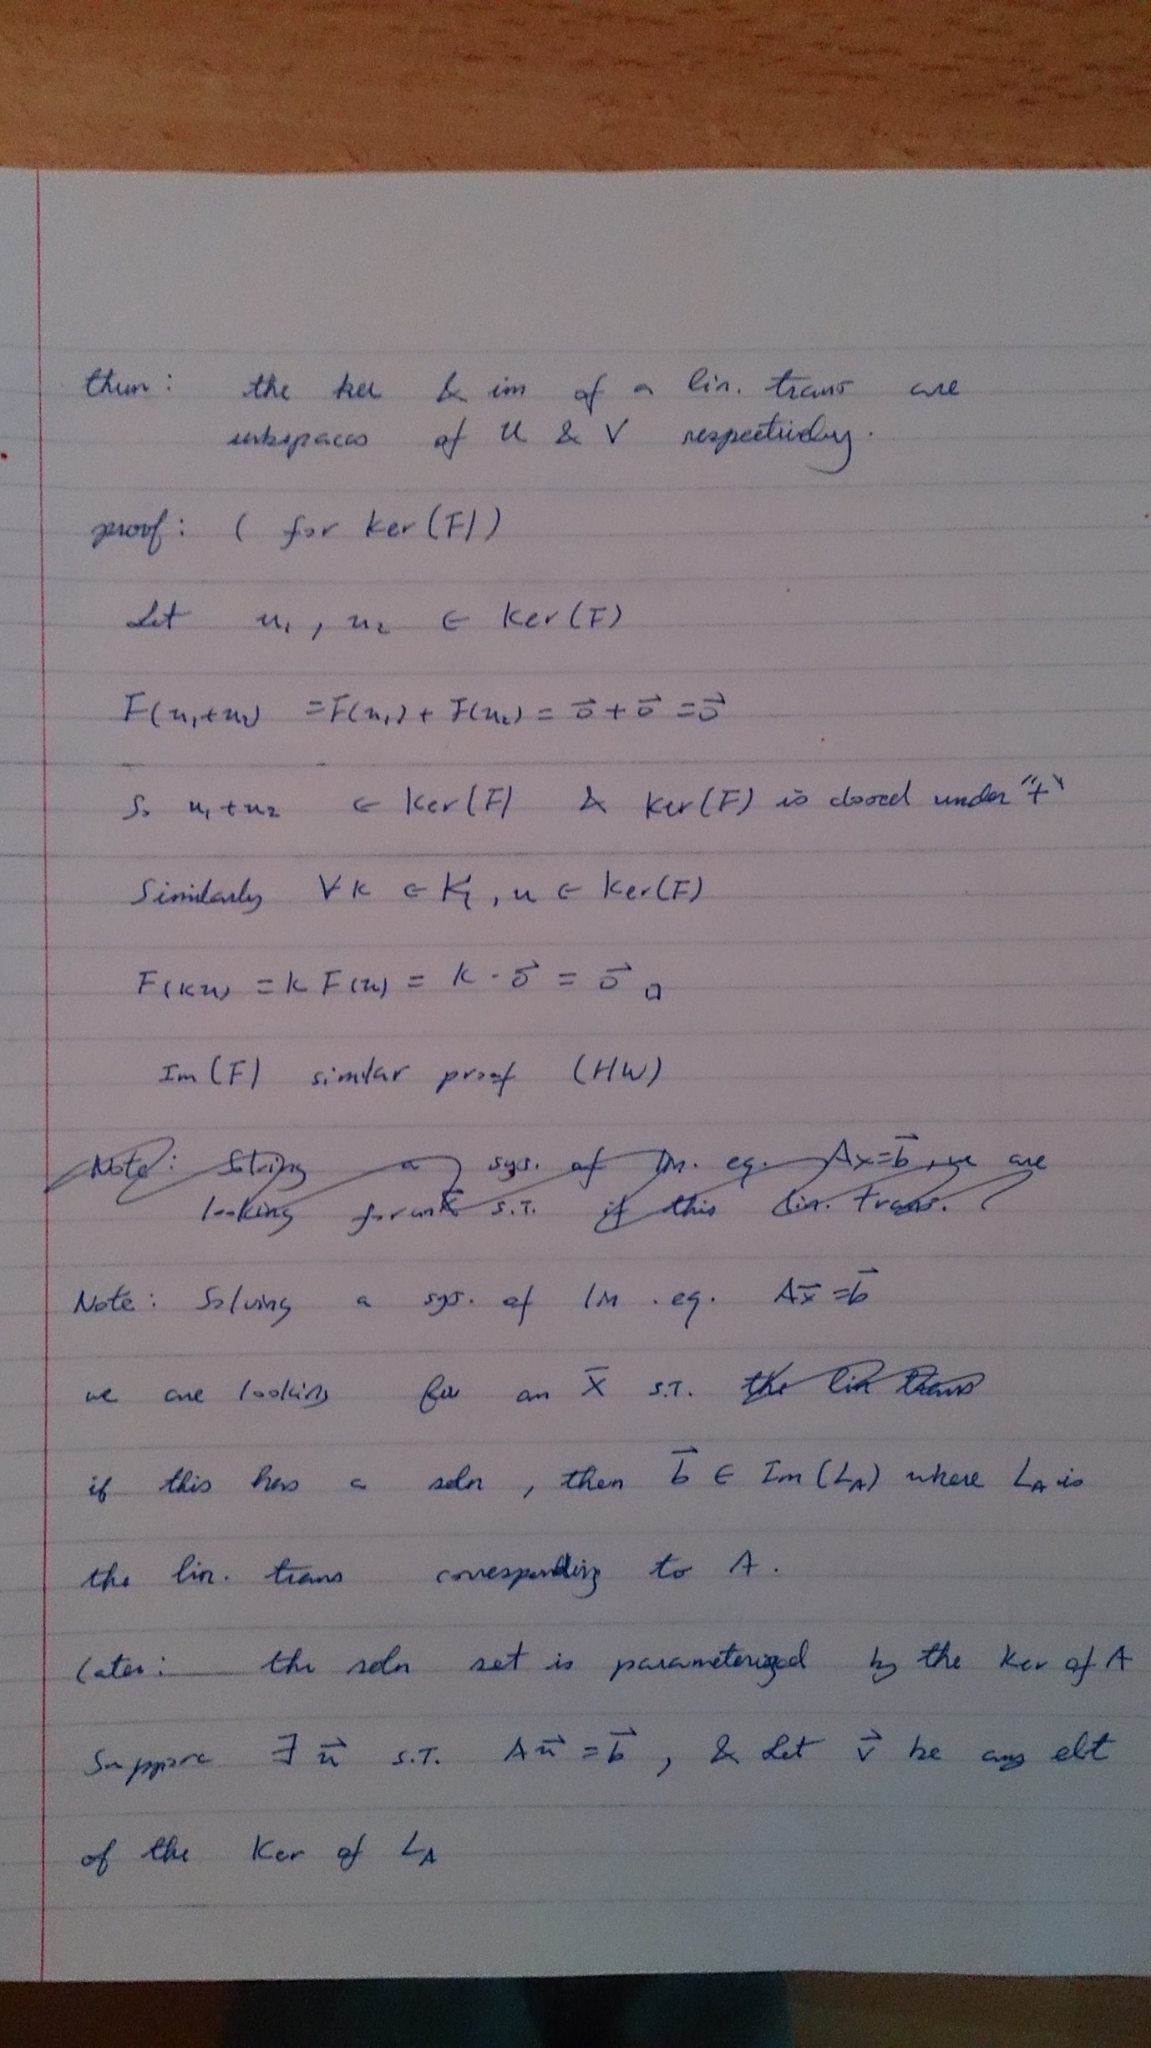 thm: the ker & im of a lin. trans are
subspaces of U & V respectively.
proof: ( for ker(F))
Let u₁, u₂ ∈ Ker(F)
F(u₁+u₂) =F(u₁)+ F(u₂) = 0⃗ + 0⃗ = 0⃗
So u₁+u₂ ∈ Ker(F) & Ker(F) is closed under "+"
Similarly ∀k ∈ K, u ∈ Ker(F)
F(ku) = k F(u) = k · 0⃗ = 0⃗ □
Im(F) similar proof (HW)
Note: Solving a sys. of lin. eq. Ax=b⃗, we are
looking for an x⃗ s.T. if this lin. trans.
Note: Solving a sys. of lin. eq. Ax⃗=b⃗
we are looking for an x̄ s.T. the lin trans
if this has a soln, then b⃗ ∈ Im(L_A) where L_A is
the lin. trans corresponding to A.
Later: the soln set is parameterized by the Ker of A
Suppose ∃ u⃗ s.T. Au⃗ = b⃗, & Let v⃗ be any elt
of the Ker of L_A